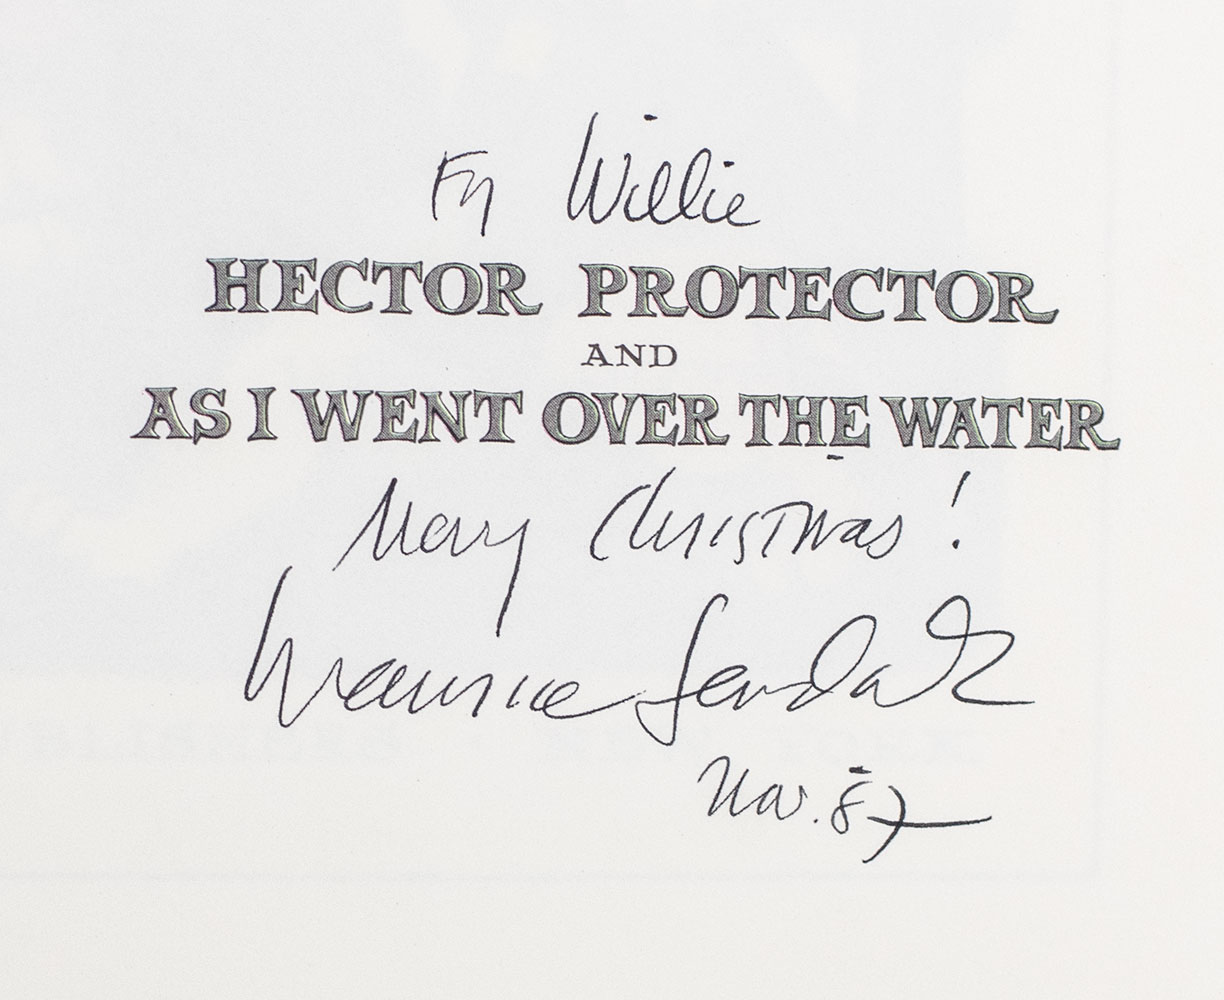 For Willie
HECTOR PROTECTOR
AND
AS I WENT OVER THE WATER
Merry Christmas!
Maurice Sendak
Nov. 87